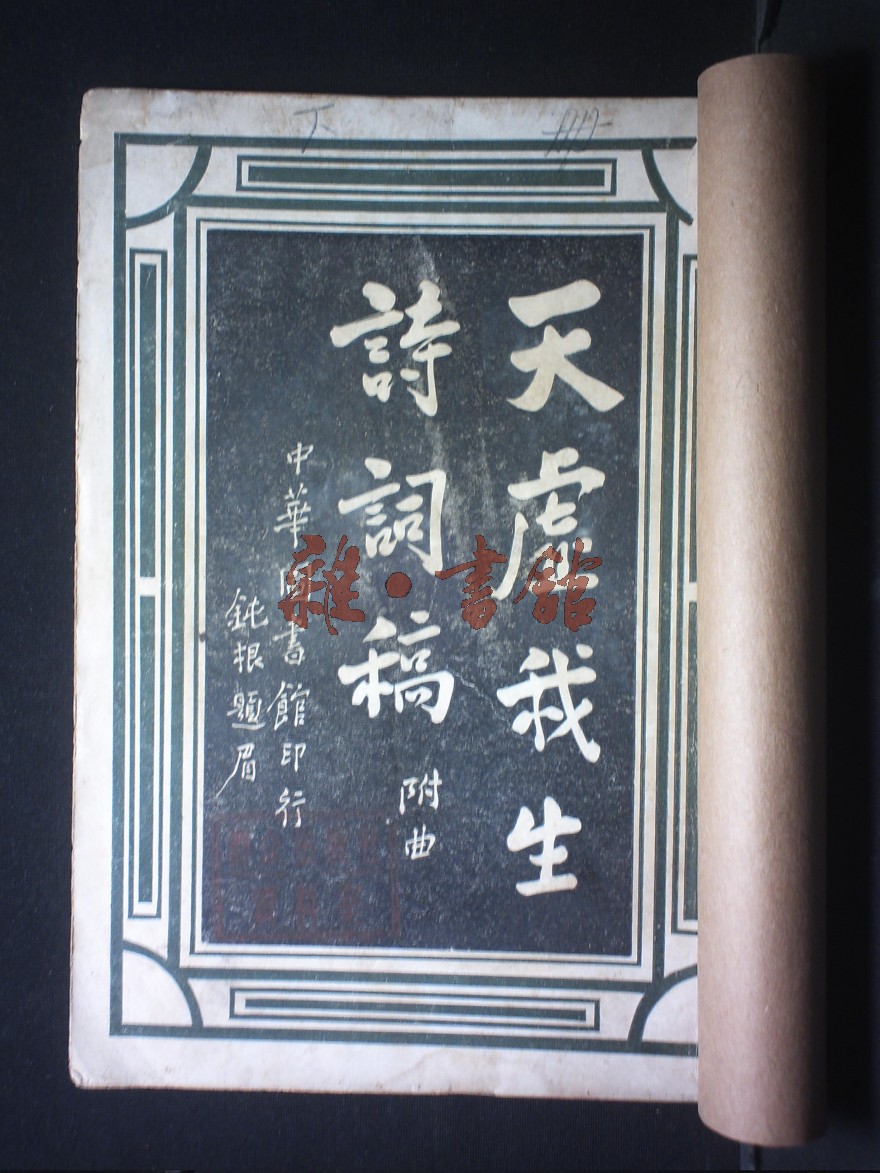 天虛我生
詩詞稿
附曲
中華圖書館印行
鈍根題眉
雜·書館
下